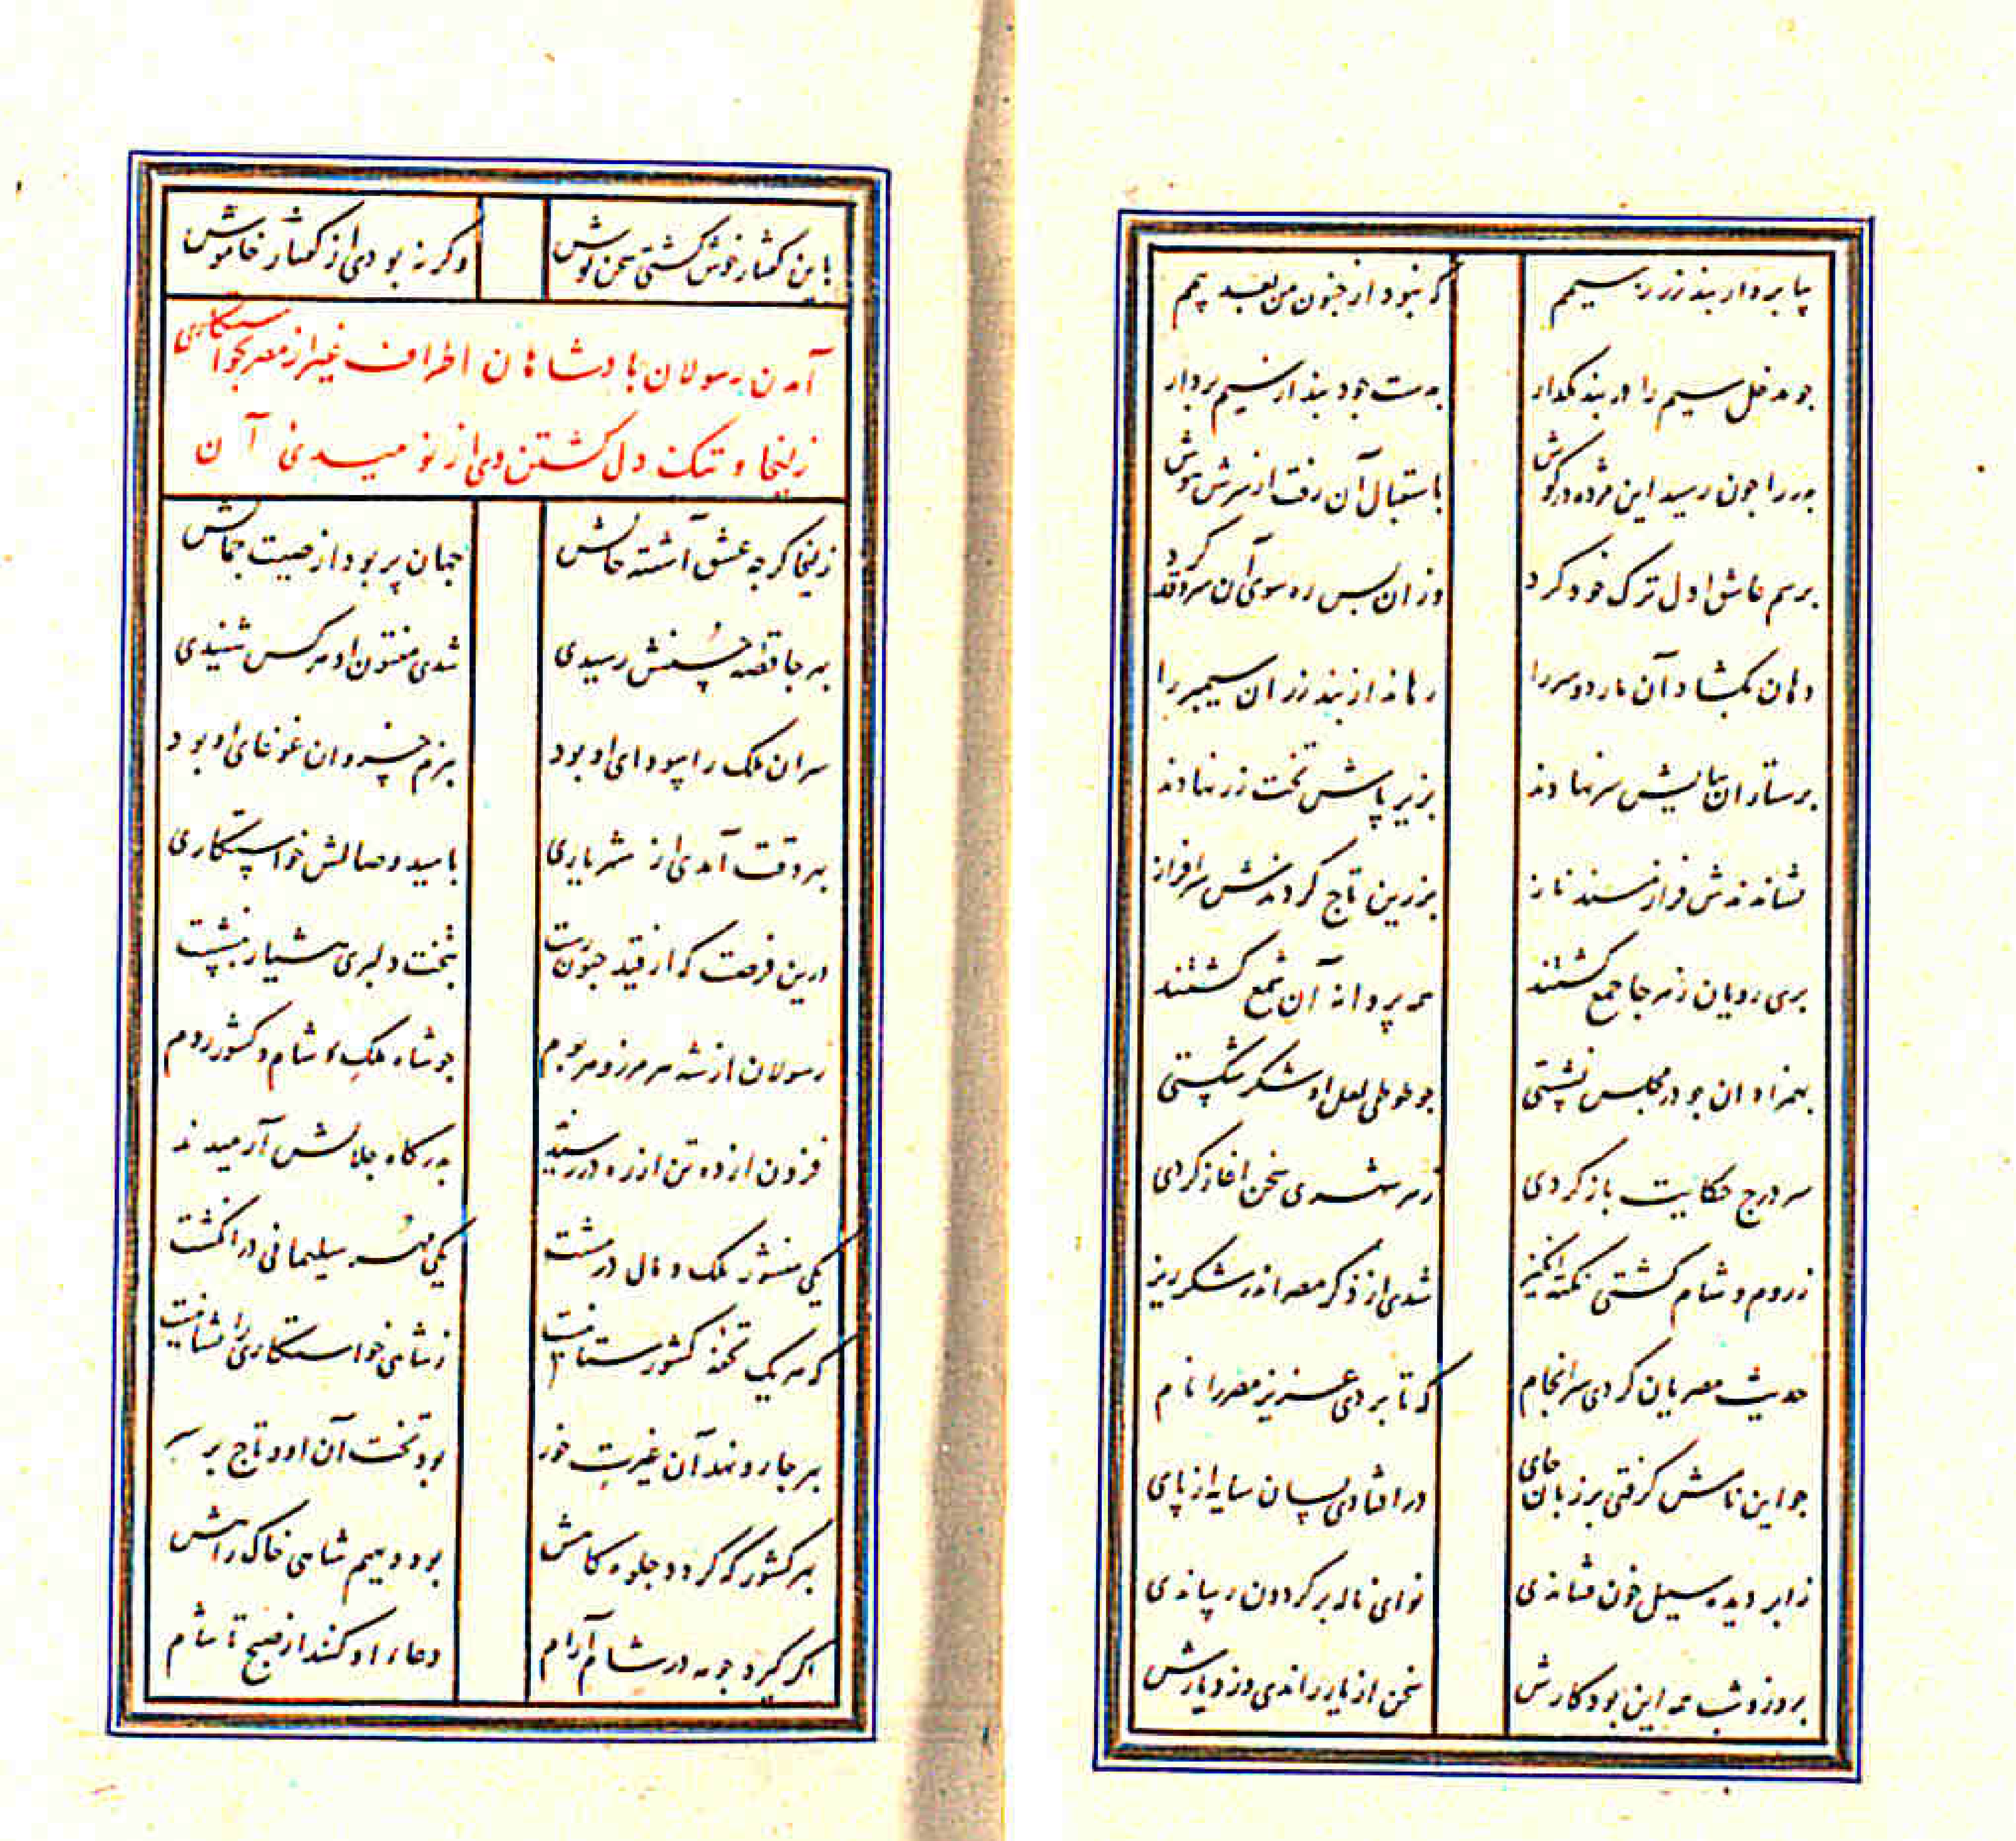 بیا بردار بند زر ز سیمم که نبود از جنون من بعد بیمم
چو مدخل سیم را در بند مگذار بدست جود بند از سیم بردار
پدر را چون رسید این مژده در گوش باستقبال آن رفت از سرش هوش
برسم عاشق اول ترک خود کرد وزان پس ره سوی آن سرو قد کرد
دهان بگشاد آن مار دو سر را رهاند از بند زر آن سیمبر را
پرستاران بپایش سر نهادند بزیر پاش تخت زر نهادند
نشاندندش فراز مسند ناز بزرین تاج کردندش سرافراز
پری رویان ز هر جا جمع گشتند همه پروانه آن شمع گشتند
بهمزادان چو در مجلس نشستی چو طوطی لعل او شکر شکستی
سر درج حکایت باز کردی ز هر شهری سخن اغاز کردی
ز روم و شام گشتی نکته انگیز شدی از ذکر مصر اندر شکر ریز
حدیث مصریان کردی سرانجام که تا بردی عزیز مصر را نام
چو این نامش گرفتی بر زبان جای در افتادی بسان سایه از پای
ز ابر دیده سیل خون فشاندی نوای ناله بر گردون رساندی
بروز و شب همه این بود کارش سخن از یار راندی وز دیارش
باین گفتار خوش گشتی سخن کوش وگرنه بودی از گفتار خاموش
آمدن رسولان پادشاهان اطراف غیر از مصر بخواستکاری
زلیخا و تنک دل گشتن وی از نومیدئی آن
زلیخا گرچه عشق آشفت حالش جهان پر بود از صیت جمالش
بهر جا قصه حُسنش رسیدی شدی مفتون او هر کس شنیدی
سران ملک را سودای او بود ببزم خسروان غوغای او بود
بهر وقت آمدی از شهریاری بامید وصالش خواستکاری
درین فرصت که از قید جنون رست بتخت دلبری هشیار بنشست
رسولان از شه هر مرز و هر بوم چو شاه ملک شام و کشور روم
فزون از ده تن از ره در رسیدند بدرگاه جلالش آرمیدند
یکی منشور ملک و مال در مشت یکی مُهر سلیمانی در انگشت
که هر یک تحفهٔ کشور ستانیست ز شاهی خواستکاری را نشانیست
بهر جا رو نهد آن غیرت خور بود تخت آن او و تاج بر سر
بهر کشور که گردد جلوه کاهش بود دیهیم شاهی خاک راهش
اگر گیرد چو مه در شام آرام دعاء او کنند از صبح تا شام